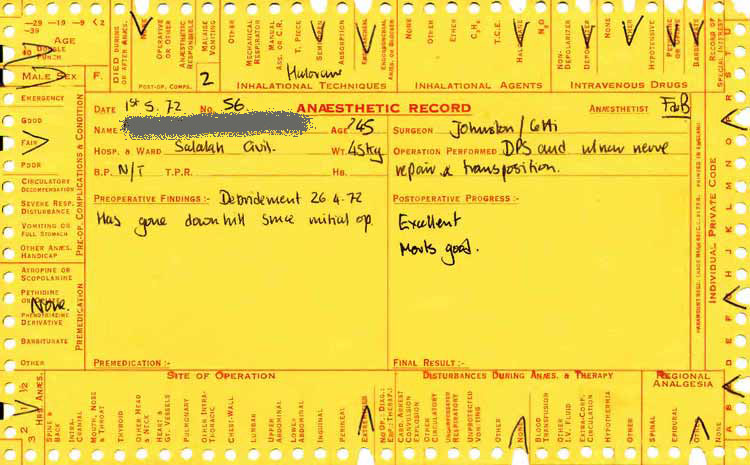 –29 –19 –9 <2
–39
AGE
40 DOUBLE PUNCH
MALE SEX F.
DIED DURING OR AFTER ANÆS.
OPERATIVE OR OTHER
ANÆSTHETIC RESPONSIBLE
MALAISE VOMITING
OTHER
POST-OP. COMPS. 2
MECHANICAL RESPIRATOR
MANUAL ASS. OR C.R.
T. PIECE
SEMI-OPEN
ABSORPTION
INHALATIONAL TECHNIQUES
NONE
OTHER
ETHER
C3H6
T.C.E.
N2O
INHALATIONAL AGENTS
NON-DEPOLARIZER
DEPOLARIZER
OTHER
HYPOTENSIVE
INTRAVENOUS DRUGS
RECORD OF SPECIAL INTEREST
DATE 1st 5. 72 No. 56 ANÆSTHETIC RECORD ANÆSTHETIST
NAME AGE ?45 SURGEON Johnston/
HOSP. & WARD Salalah Civil. WT. 45kg OPERATION PERFORMED DPS and ulnar nerve
B.P. N/T T.P.R. HB. repair & transposition.
PREOPERATIVE FINDINGS :- Debridement 26.4.72 POSTOPERATIVE PROGRESS :-
Has gone downhill since initial op. Excellent
good.
PREMEDICATION :- FINAL RESULT :-
EMERGENCY
GOOD
FAIR
POOR
CIRCULATORY DECOMPENSATION
SEVERE RESP. DISTURBANCE
VOMITING OR FULL STOMACH
OTHER ANÆS. HANDICAP
PRE-OP. COMPLICATIONS & CONDITION
ATROPINE OR SCOPOLAMINE
PETHIDINE
None.
PHENOTHIAZINE DERIVATIVE
BARBITURATE
OTHER
PREMEDICATION
INDIVIDUAL PRIVATE CODE
SITE OF OPERATION
DISTURBANCES DURING ANÆS. & THERAPY
REGIONAL ANALGESIA
3 2 1 ½
HRS. ANÆS.
SPINE & BACK
INTRA-CRANIAL
MOUTH, NOSE & THROAT
THYROID
OTHER HEAD & NECK
HEART & GT. VESSELS
PULMONARY
OTHER INTRA-THORACIC
CHEST-WALL
LUMBAR
UPPER ABDOMINAL
LOWER ABDOMINAL
INGUINAL
PERINEAL
EXTREMITIES
CARD. ARREST CONVULSION EXPLOSION
OTHER CIRCULATORY
UNEXPECTED RESPIRATORY
UNEXPECTED VOMITING
OTHER
NONE
BLOOD TRANSFUSION
OTHER I.V. FLUID
EXTRA-CORP. CIRCULATION
HYPOTHERMIA
OTHER
SPINAL
EPIDURAL
OTHER
NONE